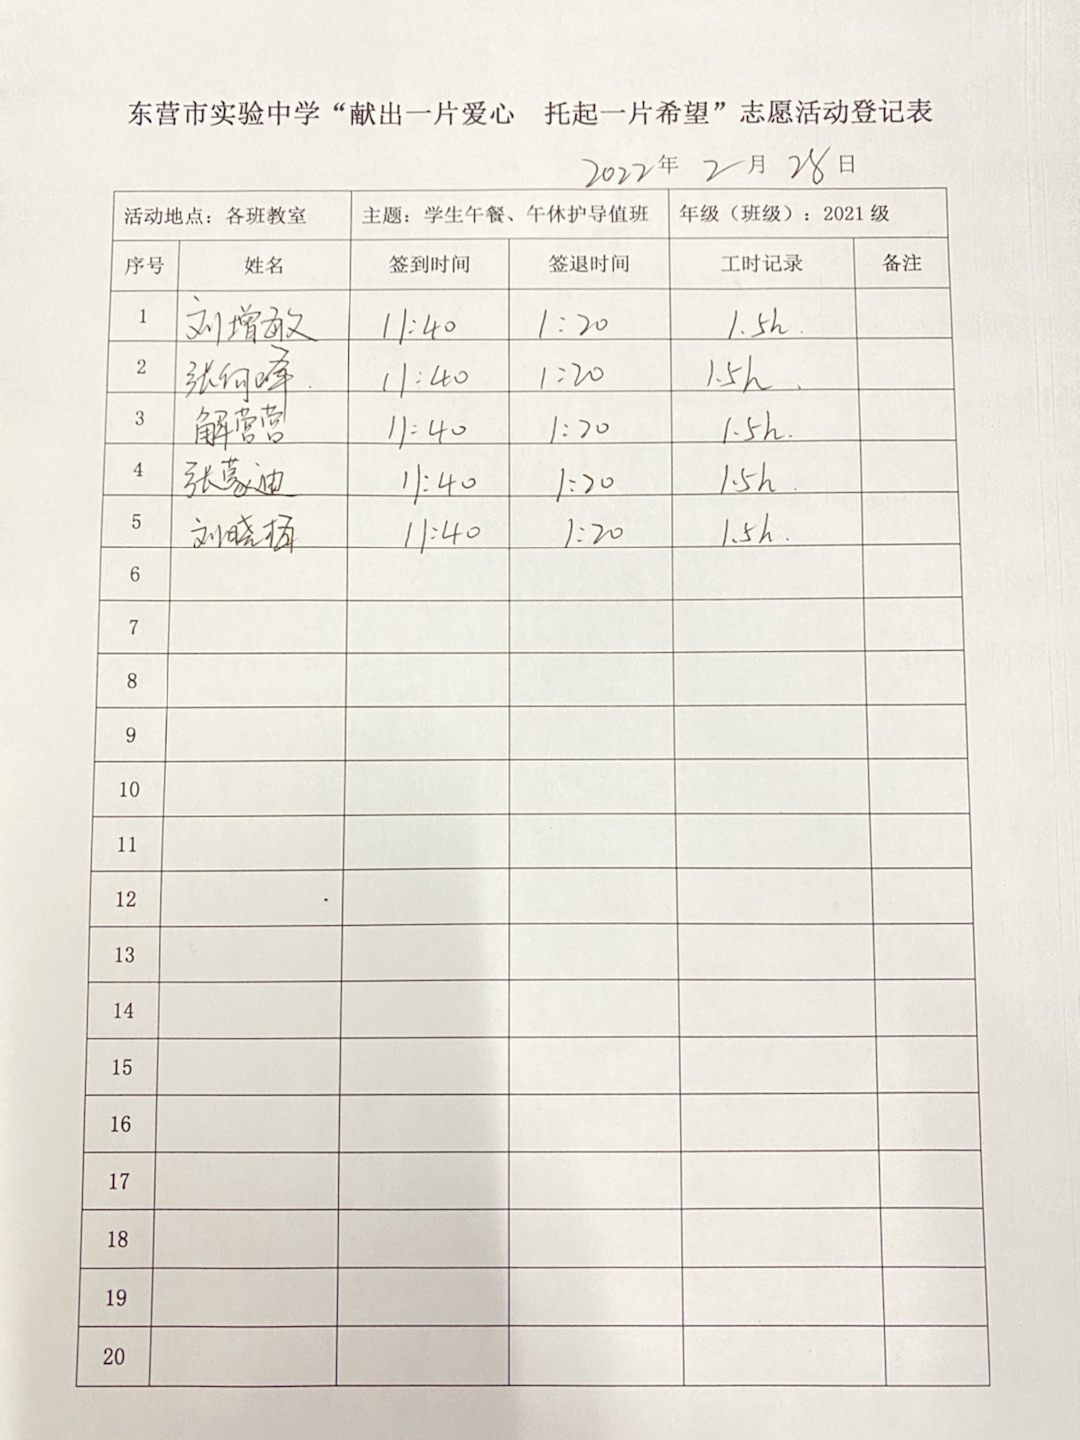 东营市实验中学“献出一片爱心 托起一片希望”志愿活动登记表
2022年 2月 28日
活动地点：各班教室 主题：学生午餐、午休护导值班 年级（班级）：2021级
序号 姓名 签到时间 签退时间 工时记录 备注
1 刘增敏 11:40 1:20 1.5h.
2 张何峰. 11:40 1:20 1.5h.
3 解营营 11:40 1:20 1.5h.
4 张蒙迪 11:40 1:20 1.5h.
5 刘晓 11:40 1:20 1.5h.
6
7
8
9
10
11
12
13
14
15
16
17
18
19
20